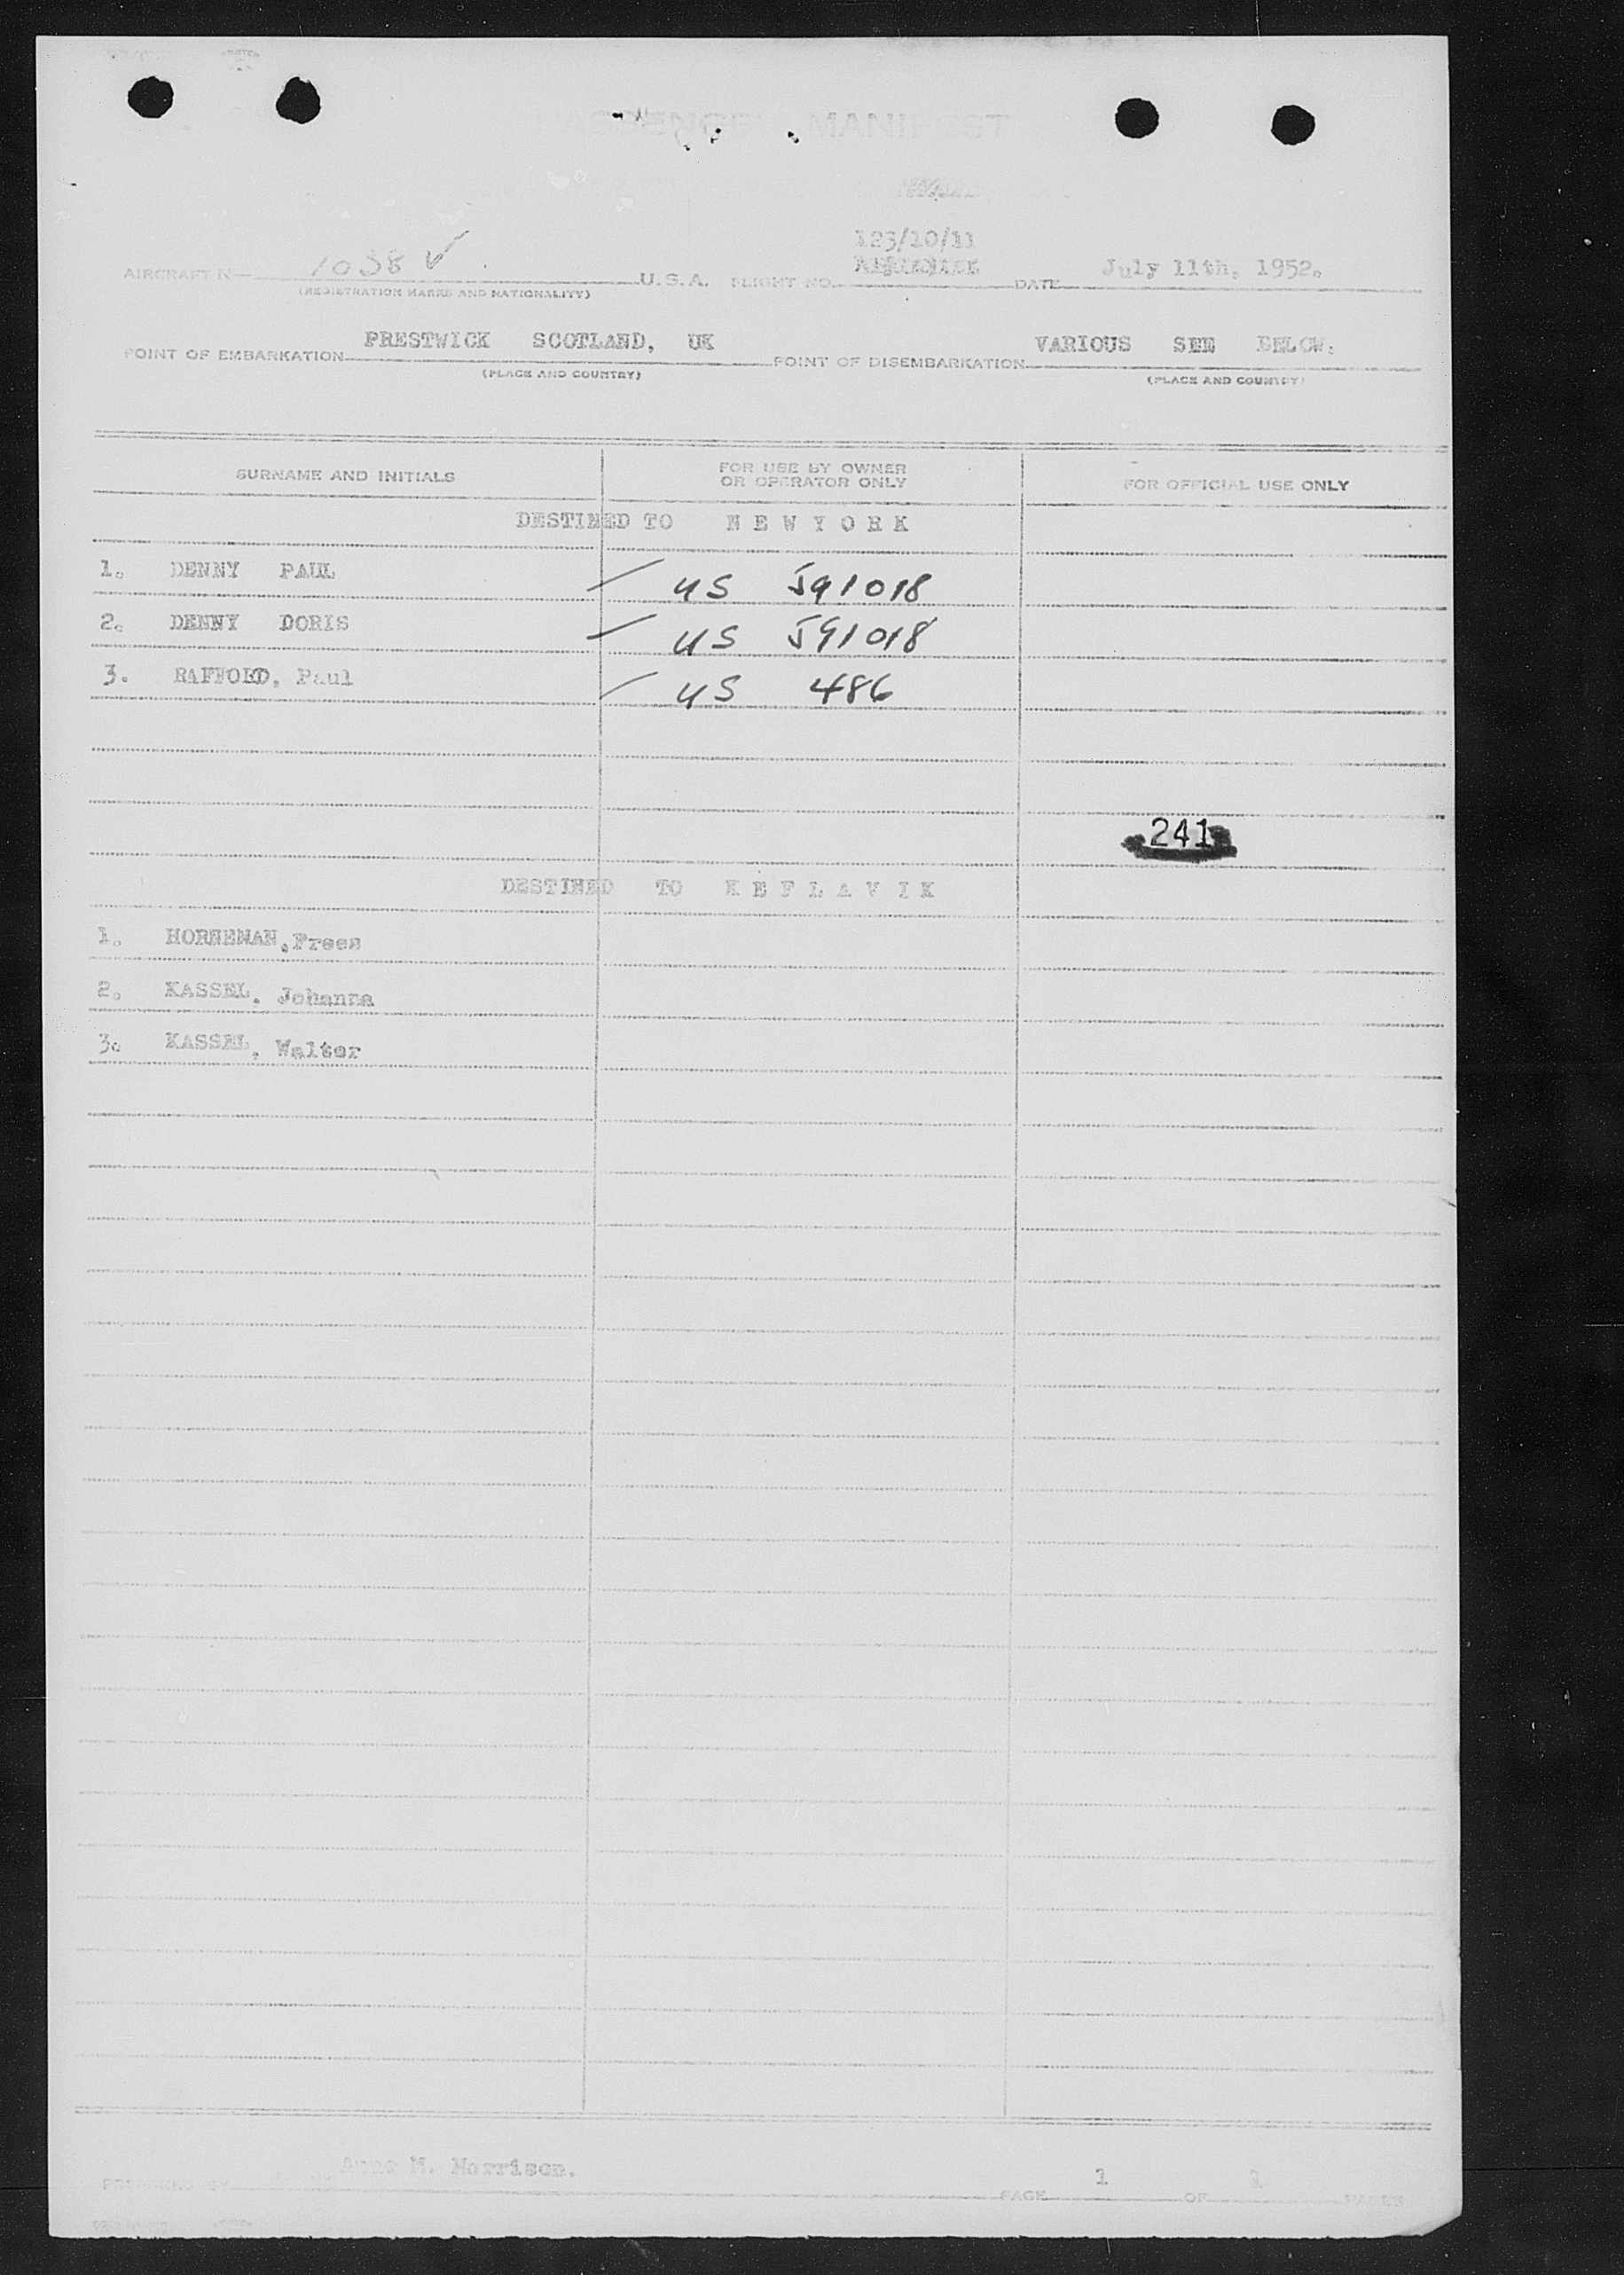 PASSENGER MANIFEST
123/10/11
AIRCRAFT N— 1038 V U.S.A. FLIGHT NO. DATE July 11th, 1952.
(REGISTRATION MARKS AND NATIONALITY)
POINT OF EMBARKATION PRESTWICK SCOTLAND, UK POINT OF DISEMBARKATION VARIOUS SEE BELOW.
(PLACE AND COUNTRY) (PLACE AND COUNTRY)
SURNAME AND INITIALS FOR USE BY OWNER OR OPERATOR ONLY FOR OFFICIAL USE ONLY
DESTINED TO N E W Y O R K
1. DENNY PAUL US 591018
2. DENNY DORIS US 591018
3. Paul US 486
241
DESTINED TO K E F L A V I K
1. HORNEMAN,
2. KASSEL, Johanna
3. KASSEL, Walter
PREPARED BY M. Morrison.
PAGE 1 OF 1 PAGES